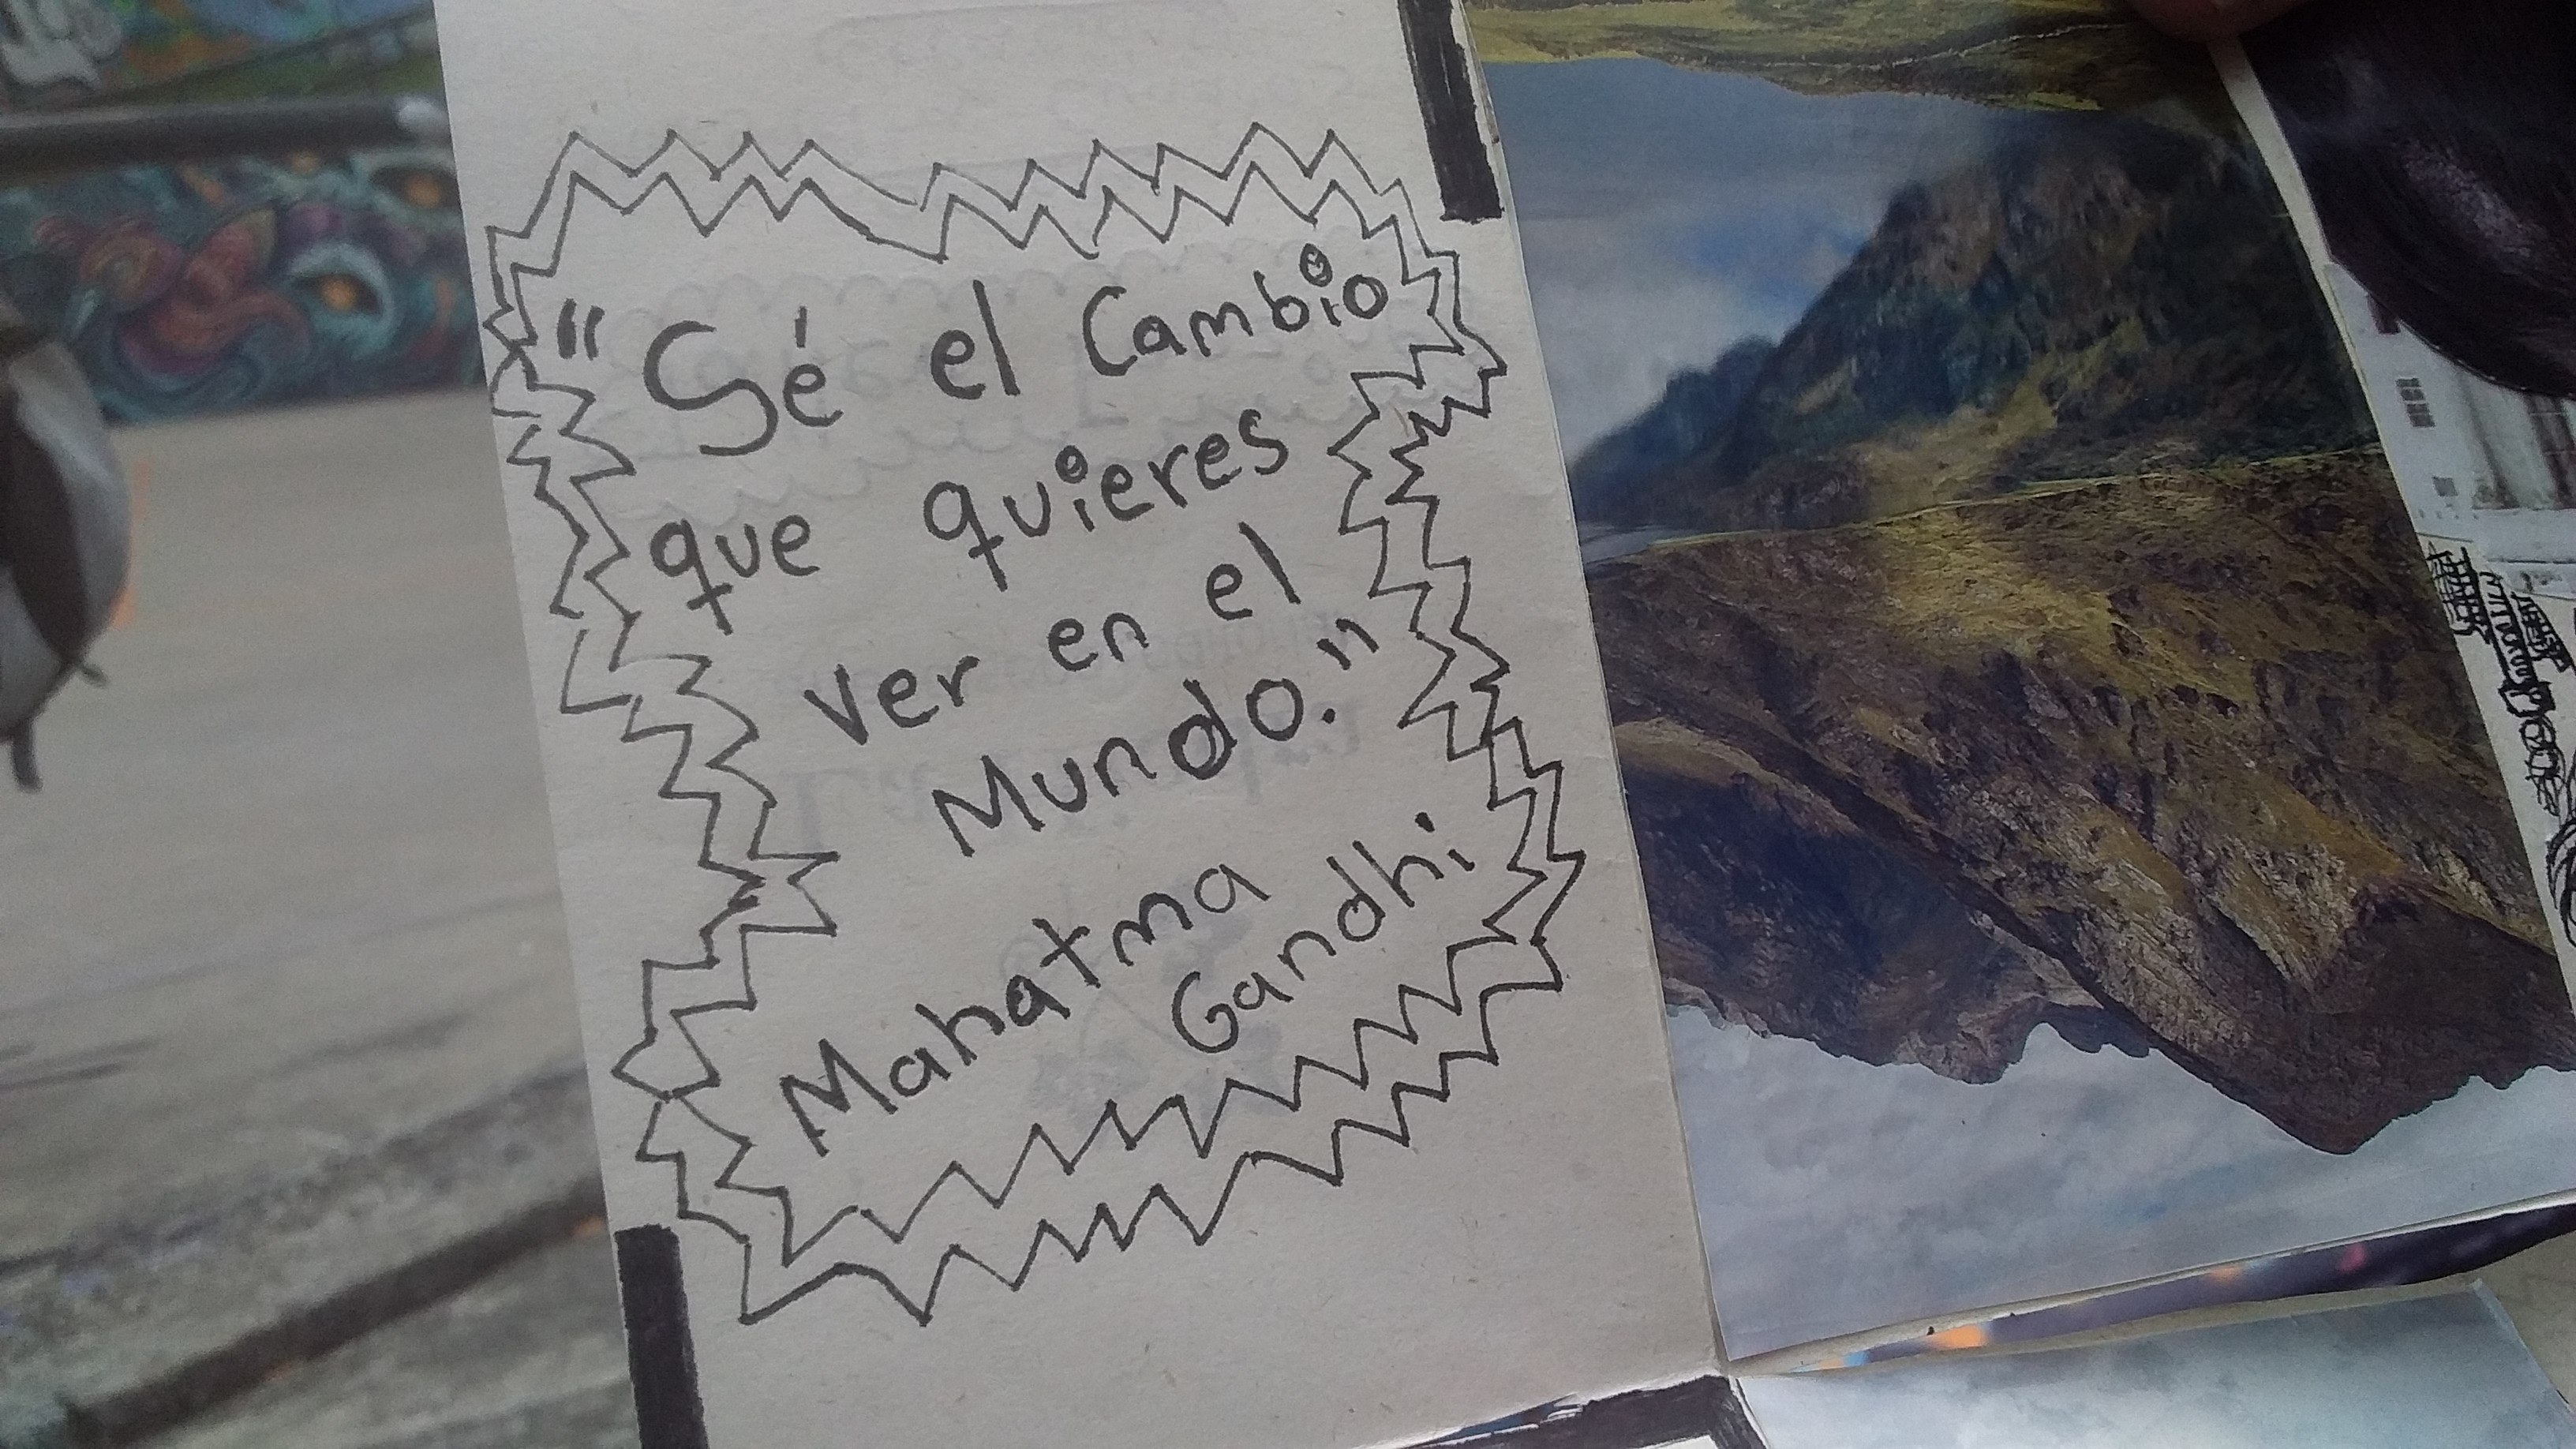 "Sé el Cambio
que quieres
ver en el
Mundo."
Mahatma
Gandhi